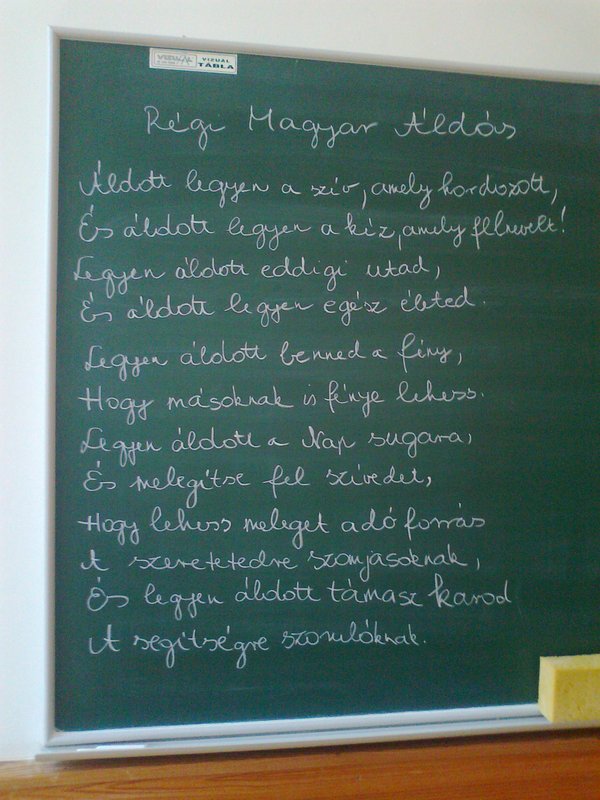 VIZUÁL
VIZUÁL
TÁBLA
Régi Magyar Áldás
Áldott legyen a szív, amely hordozott,
És áldott legyen a kéz, amely fölnevelt!
Legyen áldott eddigi utad,
És áldott legyen egész életed.
Legyen áldott benned a fény,
Hogy másoknak is fénye lehess.
Legyen áldott a Nap sugara,
És melegítse fel szívedet,
Hogy lehess meleget adó forrás
A szeretetedre szomjasoknak,
És legyen áldott támasz karod
A segítségre szorulóknak.